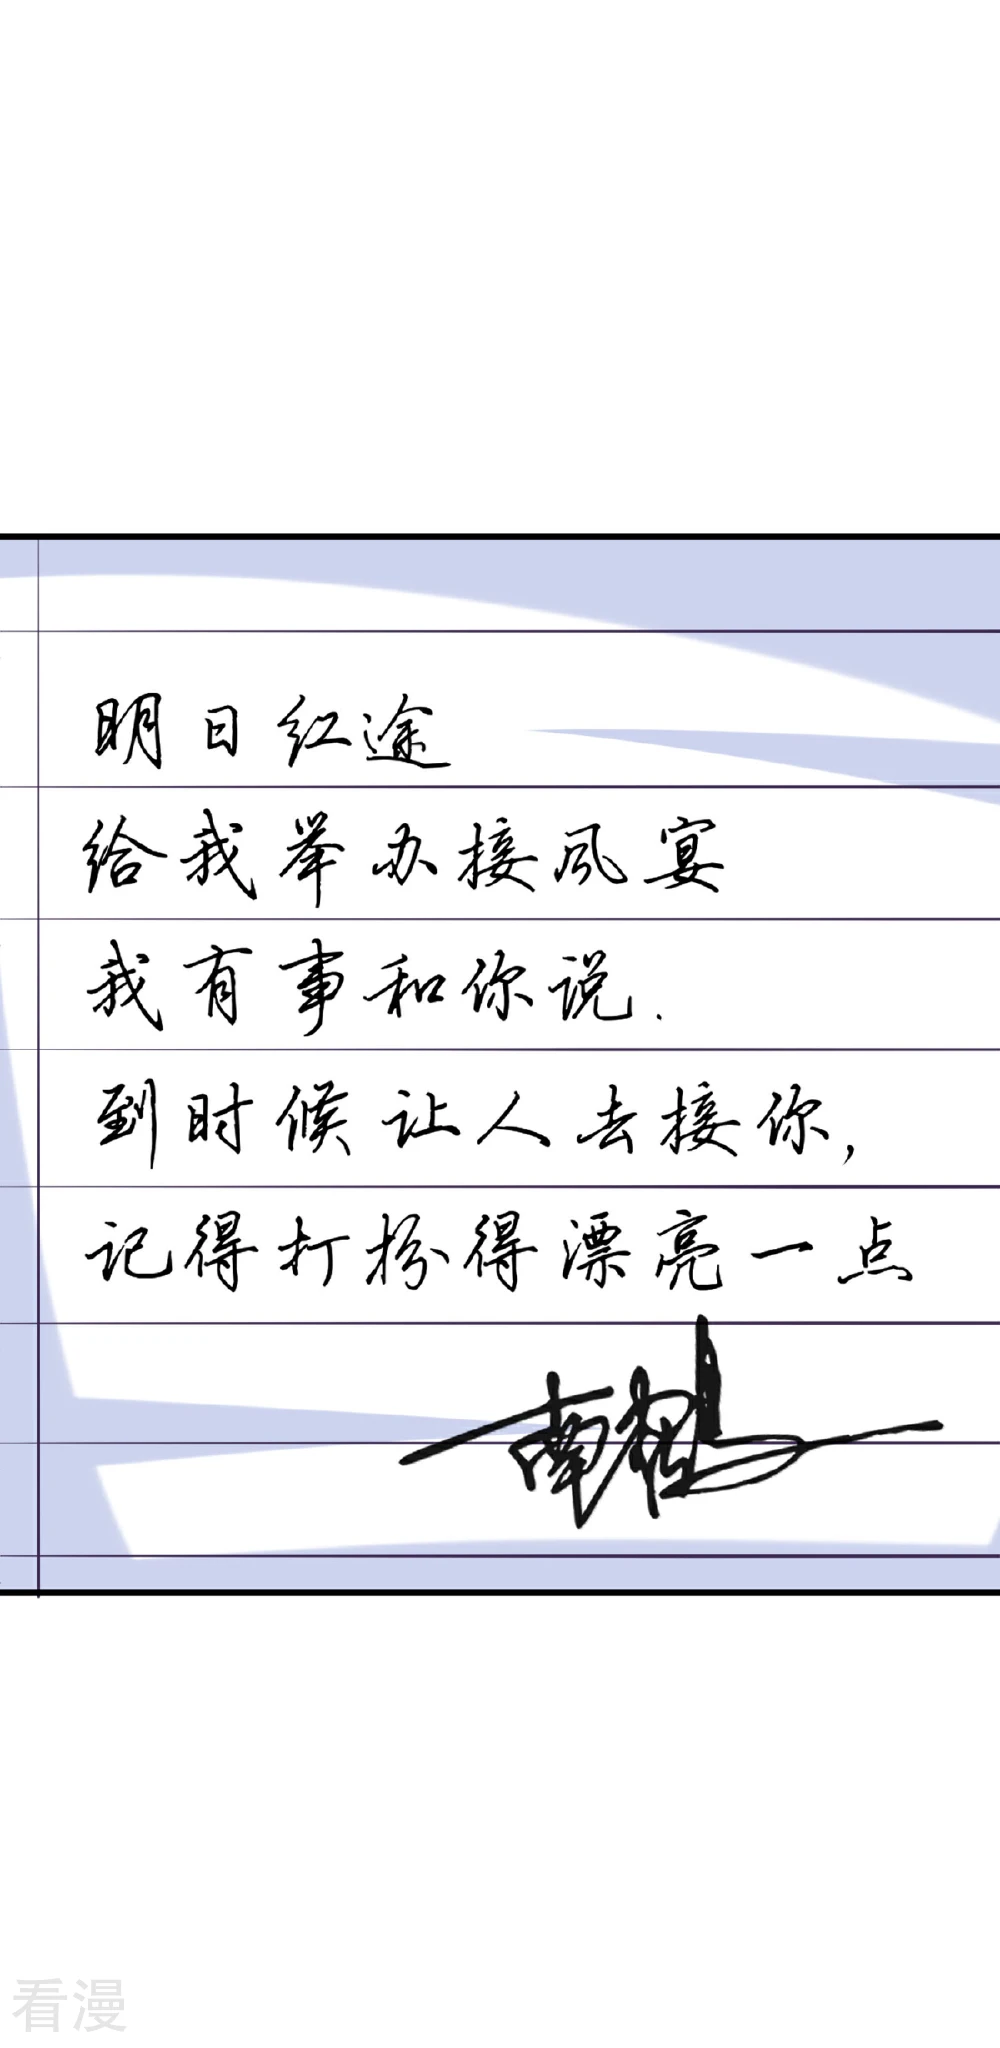 明日红途
给我举办接风宴
我有事和你说.
到时候让人去接你,
记得打扮得漂亮一点
看漫